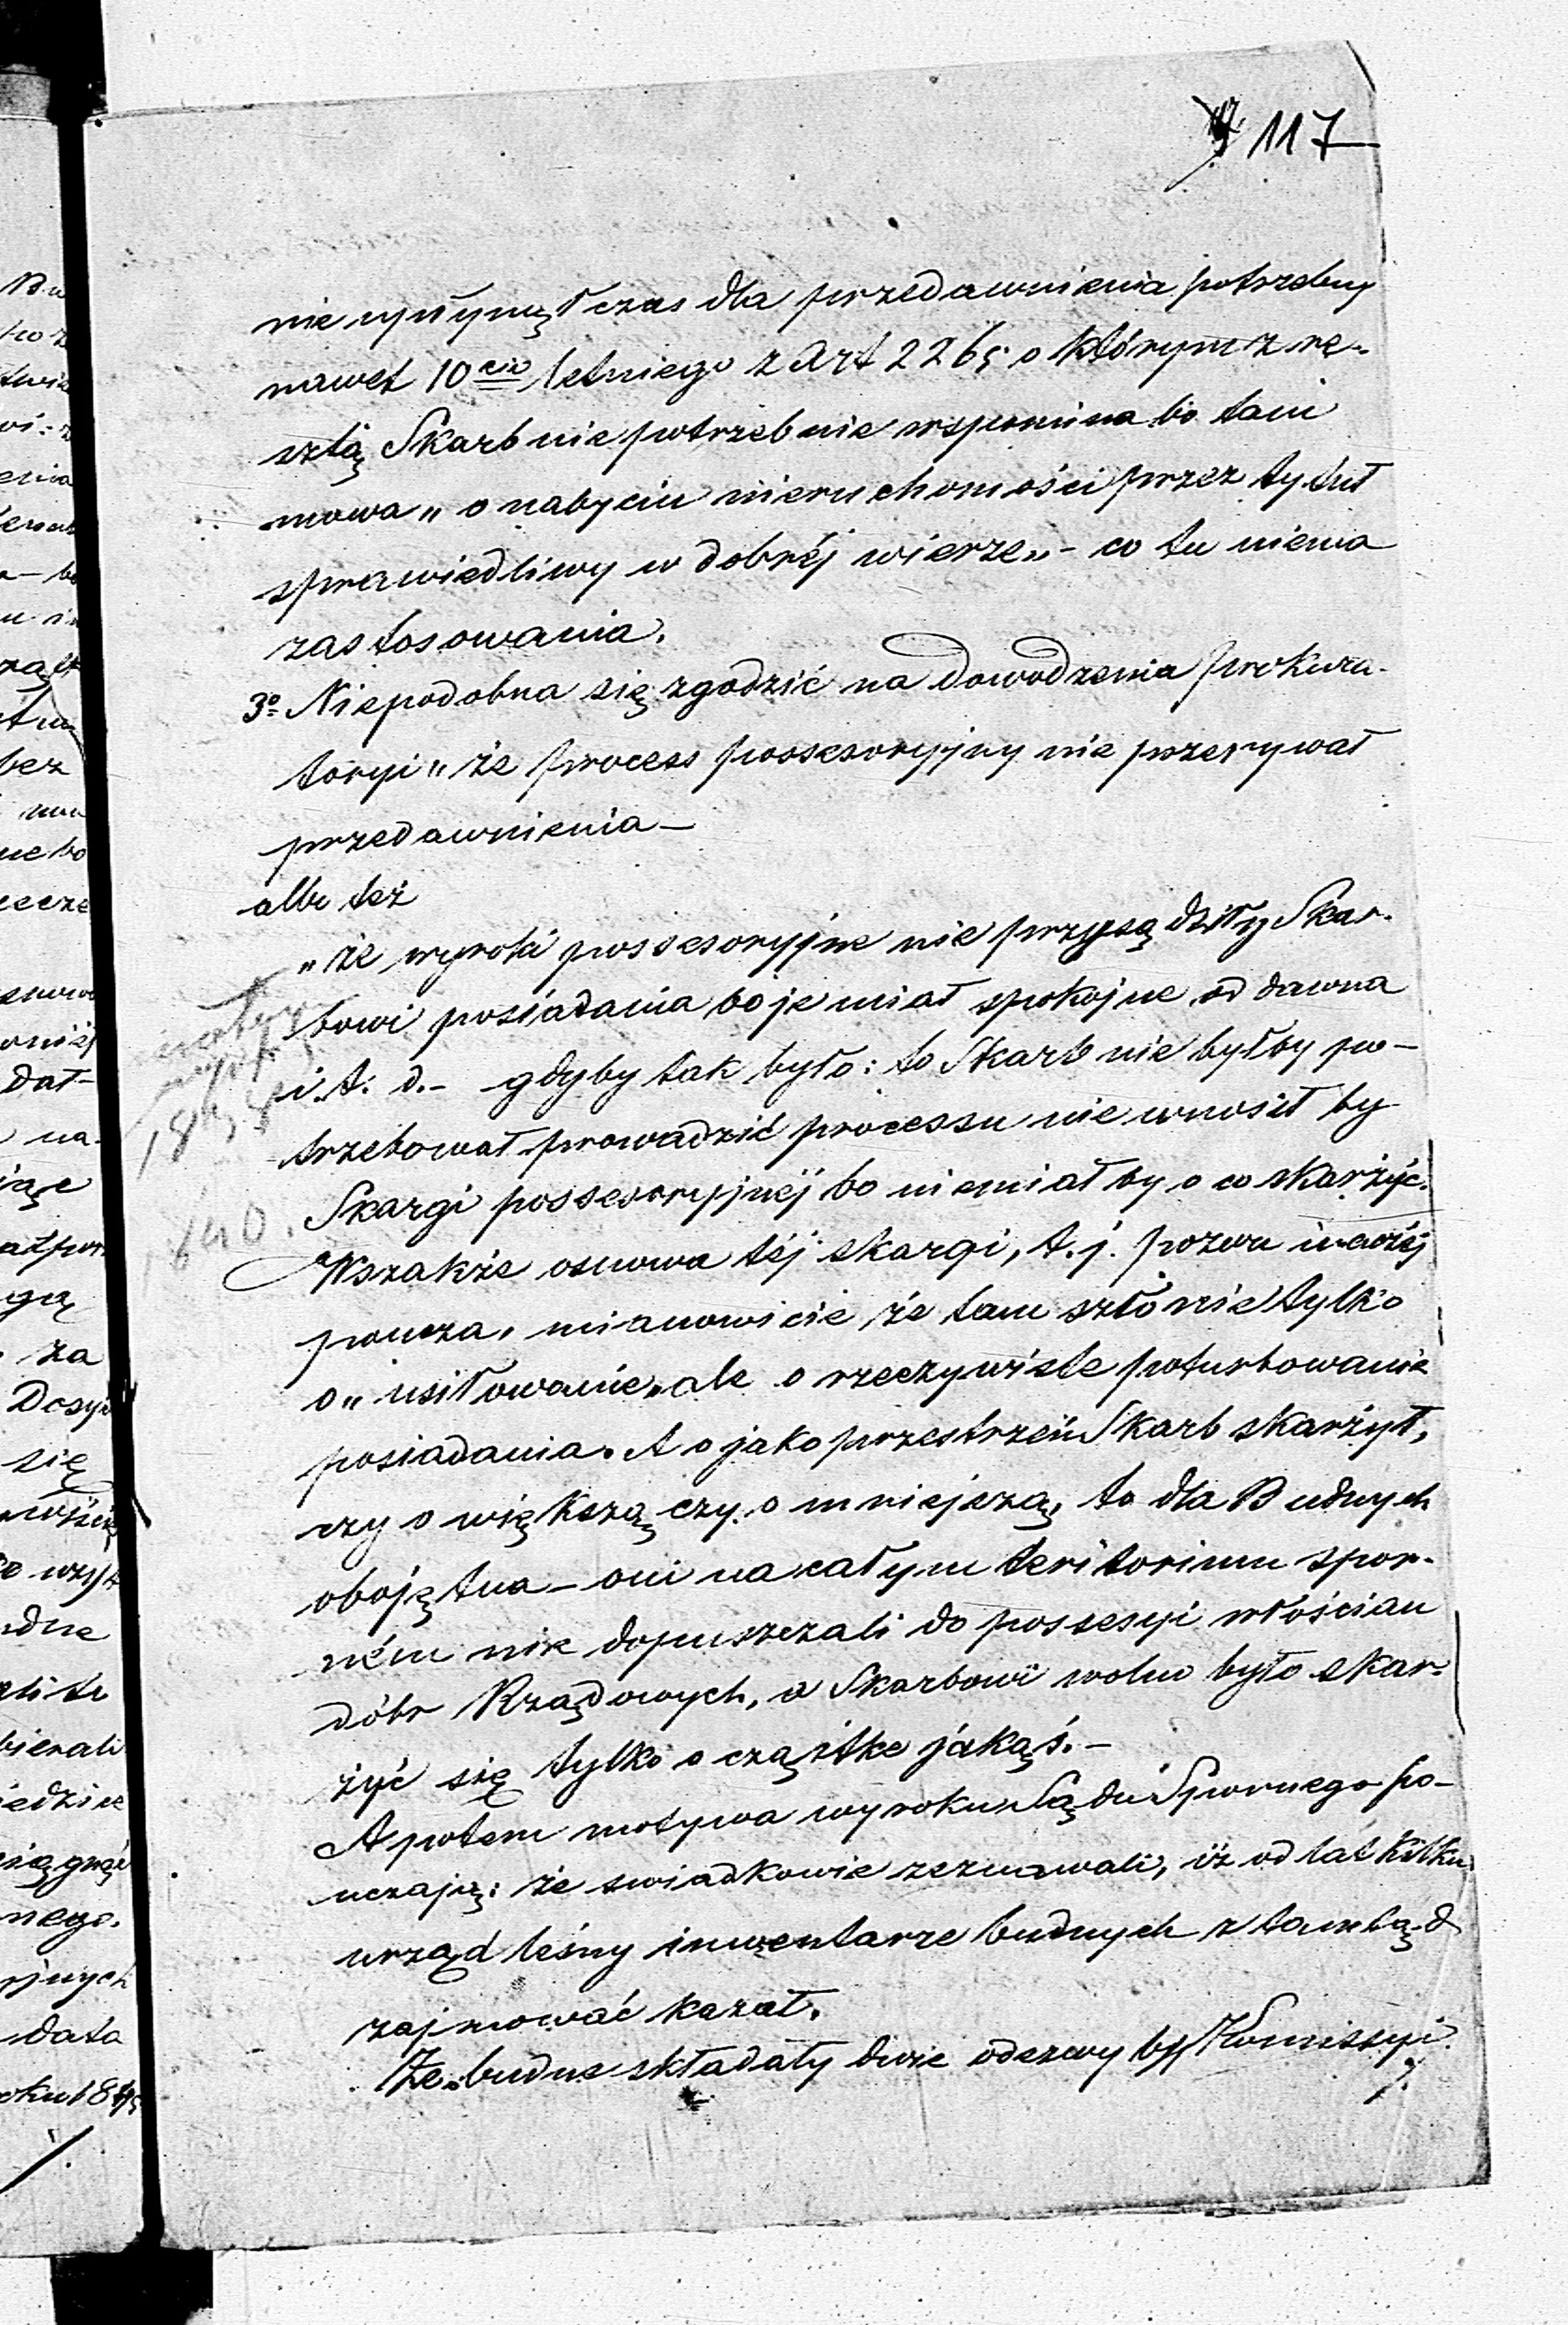 117
nie upłynął czas dla przedawnienia potrzebny
nawet 10cio letniego z Art 2265 o którym z re-
sztą Skarb niepotrzebnie wspomina bo tam
mowa „o nabyciu nieruchomości przez tytuł
sprawiedliwy w dobrej wierze„ - co tu niema
zastosowania.
3o Niepodobna się zgodzić na dowodzenia Prokura-
toryi „że process possesoryjny nie przerywał
przedawnienia—
albo też
„że wyroki possesoryjne nie przysądziły Skar-
bowi posiadania bo je miał spokojne od dawna
i. t. d.- gdyby tak było: to Skarb nie byłby po-
trzebował prowadzić processu nie wnosił by
Skargi possesoryjnéj bo niemiałby o co skarżyć.
Wszakże osnowa téj skargi, t.j. pozwu inaczéj
poucza, mianowicie że tam szło nie tylko
o „usiłowanie„ ale o rzeczywiste poturbowanie
posiadania. A o jako przestrzeń Skarb skarżył,
czy o większą czy o mniejszą, to dla Budnych
obojętna — oni na całym teritorium spor-
ném nie dopuszczali do possesyi włościan
dóbr Rządowych, a Skarbowi wolno było skar-
żyć się tylko o cząstke jakąś.-
A potem motywa wyroku Sądu Spornego po-
uczają: że swiadkowie zeznawali, iż od lat kilku
urząd leśny inwentarze budnych z tamtąd
zajmować kazał.
Że budne składały dwie odezwy by Kommissyi
1838
1840.